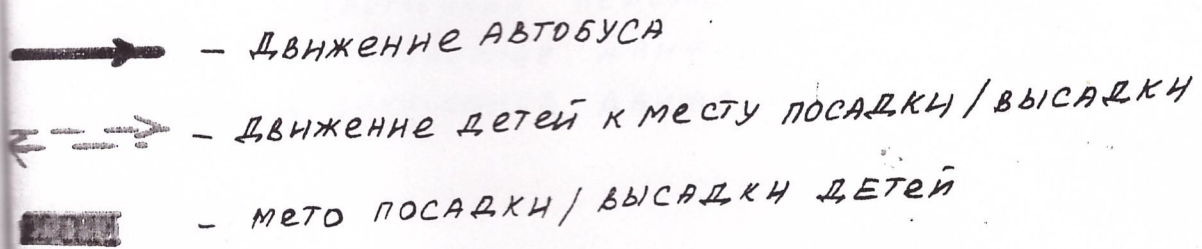 – Движение автобуса
– Движение детей к месту посадки/высадки
– мето посадки/высадки детей